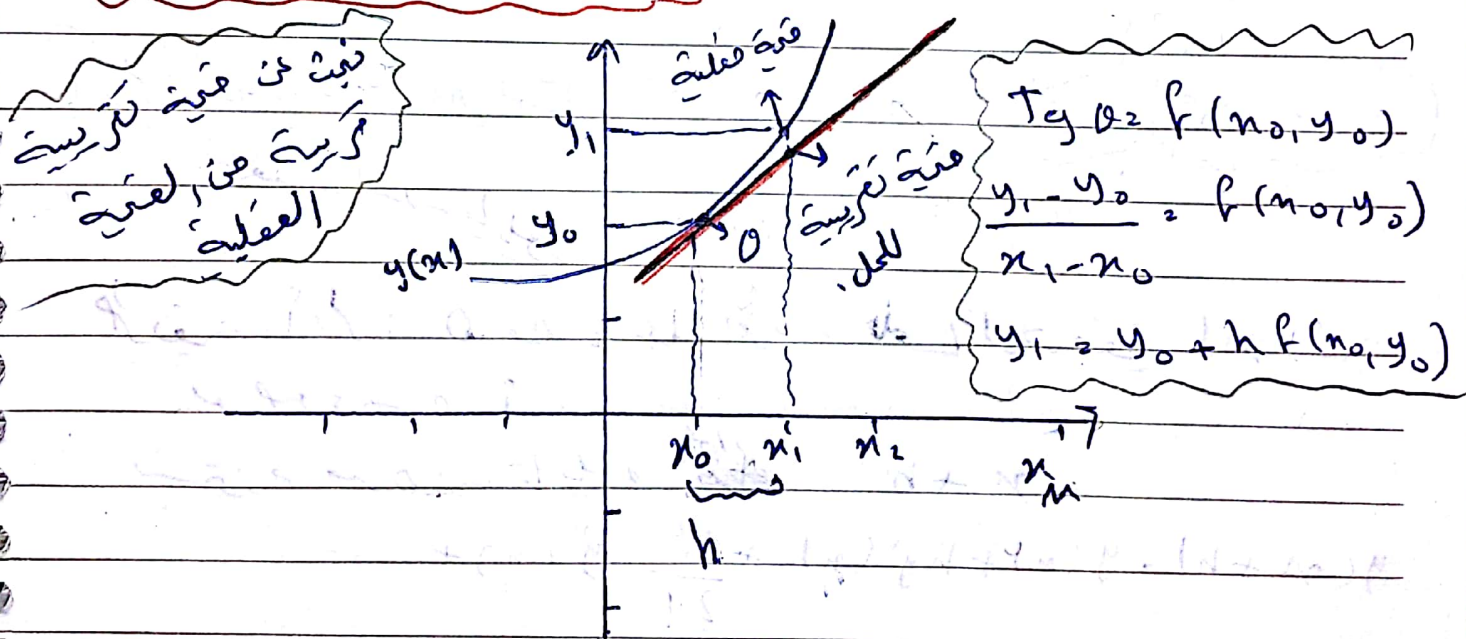 نبحث عن قيمة تقريبية
قريبة من القيمة
الفعلية
قيمة فعلية
y₁
y₀
y(x)
θ
قيمة تقريبية
للحل.
x₀ x₁ x₂
h
Tg θ = f(x₀, y₀)
y₁ - y₀ / x₁ - x₀ = f(x₀, y₀)
y₁ = y₀ + h f(x₀, y₀)